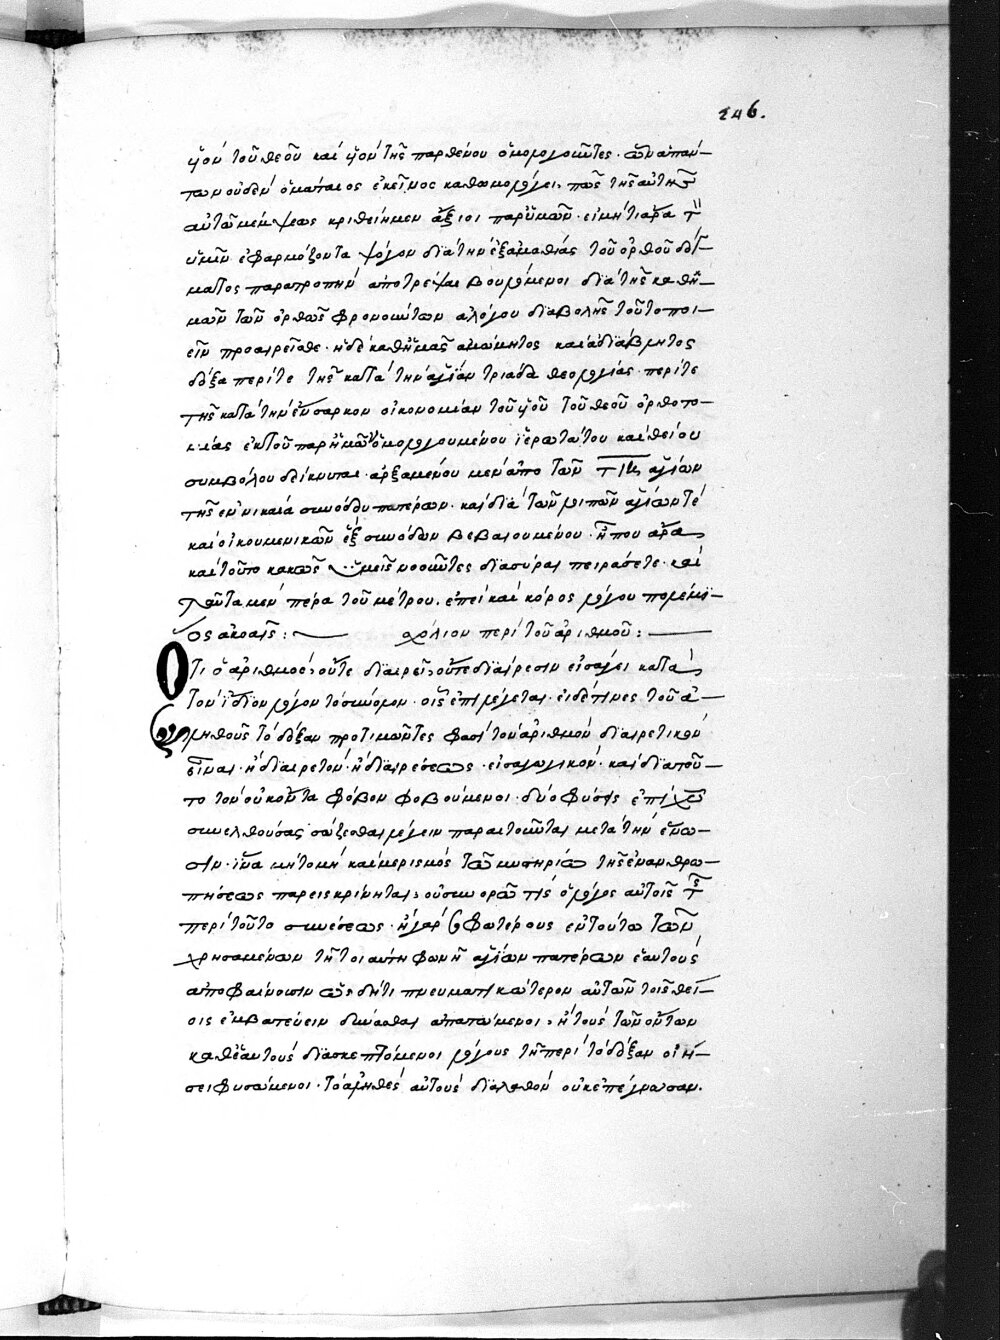 246.
υἱὸν τοῦ θεοῦ καὶ υἱὸν τῆς παρθένου ὁμολογοῦντες· ὧν ἁπάν–
των οὐδὲν ὁ μάταιος ἐκεῖνος καθωμολόγει, πῶς τῆς αὐτῆς
αὐτῷ μέμψεως κριθείημεν ἄξιοι παρ' ὑμῶν· εἰ μή τι ἄρα τὸν
ὑμῖν ἐφαρμόζοντα ψόγον διὰ τὴν ἐξ ἀμαθίας τοῦ ὀρθοῦ δόγ–
ματος παρατροπὴν ἀποτρέψαι βουλόμενοι διὰ τῆς καθ' ἡ–
μῶν τῶν ὀρθῶς φρονούντων ἀλόγου διαβολῆς τοῦτο ποι–
εῖν προαιρεῖσθε· ἡ δὲ καθ' ἡμᾶς ἀμώμητος καὶ ἀδιάβλητος
δόξα περί τε τῆς κατὰ τὴν ἁγίαν τριάδα θεολογίας· περί τε
τῆς κατὰ τὴν ἔνσαρκον οἰκονομίαν τοῦ υἱοῦ τοῦ θεοῦ ὀρθοτο–
μίας ἐκ τοῦ παρ' ἡμῶν ὁμολογουμένου ἱερωτάτου καὶ θείου
συμβόλου δείκνυται· ἀρξαμένου μὲν ἀπὸ τῶν τιη ἁγίων
τῆς ἐν νικαίᾳ συνόδου πατέρων· καὶ διὰ τῶν λοιπῶν ἁγίων τὲ
καὶ οἰκουμενικῶν ἓξ συνόδων βεβαιουμένου· ἤ που ἄρα
καὶ τοῦτο κακῶς ὑμεῖς νοοῦντες διασύραι πειράσετε· καὶ
ταῦτα μὲν πέρα τοῦ μέτρου, ἐπεὶ καὶ κόρος λόγου πολέμι–
ος ἀκοαῖς: σχόλιον περὶ τοῦ ἀριθμοῦ:
Ὅτι ὁ ἀριθμὸς, οὔτε διαιρεῖ, οὔτε διαίρεσιν εἰσάγει κατὰ
τὸν ἴδιον λόγον τὸ σύνολον· οἷς ἐπιλέγεται· εἰ δέ τινες τοῦ ἀ–
ληθοῦς τὸ δόξαν προτιμῶντες φασὶ τὸν ἀριθμὸν διαιρετικὸν
εἶναι· ἢ διαιρετὸν· ἢ διαιρέσεως εἰσαγωγικόν· καὶ διὰ τοῦ–
το τὸν οὐκ ὄντα φόβον φοβούμενοι· δύο φύσεις ἐπὶ χριστοῦ
συνελθούσας σώζεσθαι λέγειν παραιτοῦνται μετὰ τὴν ἕνω–
σιν· ἵνα μὴ τομὴ καὶ μερισμὸς τῷ μυστηρίῳ τῆς ἐνανθρω–
πήσεως παρεισκρίνηται, οὐ συνορῶ τίς ὁ λόγος αὐτοῖς τῆς
περὶ τοῦτο συνέσεως· ἢ γὰρ σοφωτέρους ἐν τούτῳ τῶν
χρησαμένων τῇ τοιαύτῃ φωνῇ ἁγίων πατέρων ἑαυτοὺς
ἀποφαίνουσιν ὡς δῆτι πνευματικώτερον αὐτῶν τοῖς θεί–
οις ἐμβατεύειν δύνασθαι ἀπατώμενοι, ἢ τοὺς τῶν ὄντων
καθ' ἑαυτοὺς διασκεπτόμενοι λόγους τῇ περὶ τὸ δόξαν οἰή–
σει φυσώμενοι· τὸ ἀληθὲς αὐτοὺς διαλαθὸν οὐκ ἐπέγνωσαν.